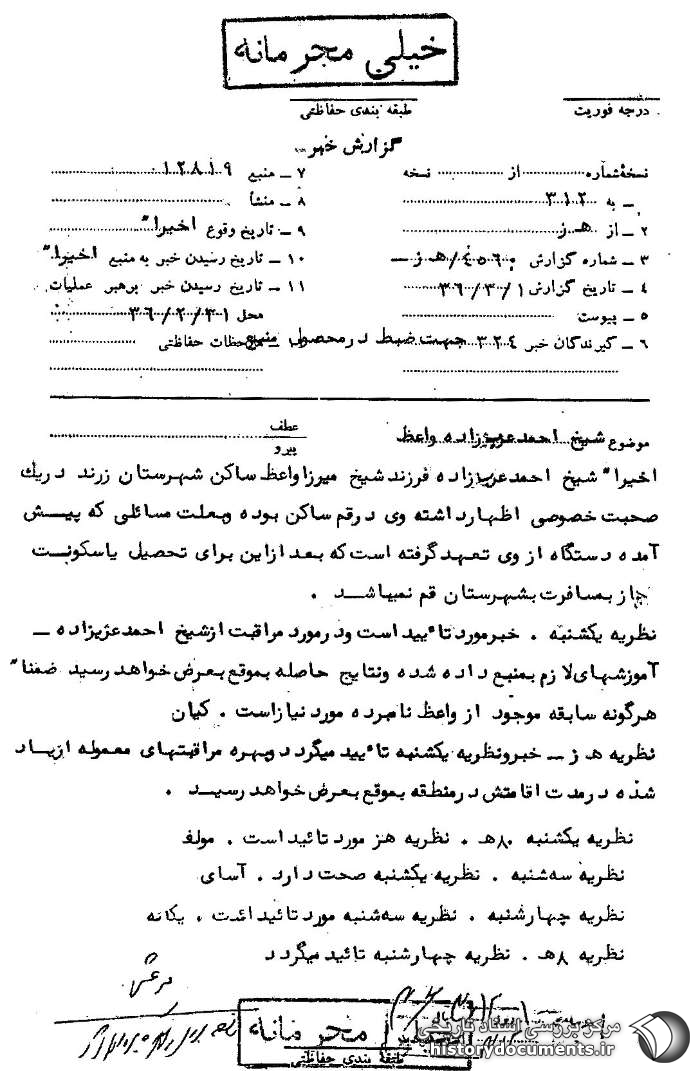 خیلی محرمانه
درجه فوریت
طبقه بندی حفاظتی
گزارش خبر
نسخه شماره از نسخه
۷ ـ منبع ۱۲۸۱۹
ـ به ۳۱۲
۸ ـ منشأ
۲ ـ از هـ ز
۹ ـ تاریخ وقوع اخیرا"
۳ ـ شماره گزارش ۴۵۶۰/هـ ز
۱۰ ـ تاریخ رسیدن خبر به منبع اخیرا"
۴ ـ تاریخ گزارش ۳۶/۳/۱
۱۱ ـ تاریخ رسیدن خبر برهبر عملیات
۵ ـ پیوست
محل ۳۶/۲/۳۱
۶ ـ گیرندگان خبر ۳۲۴ جهت ضبط در محصول منبع
ملاحظات حفاظتی
موضوع شیخ احمد عزیززاده واعظ
عطف
پیرو
اخیرا" شیخ احمد عزیززاده فرزند شیخ میرزا واعظ ساکن شهرستان زرند دریك
صحبت خصوصی اظهار داشته وی در قم ساکن بوده وبعلت مسائلی که پیش
آمده دستگاه از وی تعهد گرفته است که بعد از این برای تحصیل یا سکونت
مجاز بمسافرت بشهرستان قم نمیباشد .
نظریه یکشنبه . خبر مورد تائید است ودر مورد مراقبت از شیخ احمد عزیززاده ـ
آموزشهای لازم بمنبع داده شده ونتایج حاصله بموقع بعرض خواهد رسید ضمنا"
هرگونه سابقه موجود از واعظ نامبرده مورد نیاز است . کیان
نظریه هـ ز ـ خبر ونظریه یکشنبه تائید میگردد وبهره مراقبتهای معموله از یاد
شده در مدت اقامتش در منطقه بموقع بعرض خواهد رسید .
نظریه یکشنبه ۸۰هـ . نظریه هز مورد تائید است . مولف
نظریه سه شنبه . نظریه یکشنبه صحت دارد . آسای
نظریه چهارشنبه . نظریه سه شنبه مورد تائید است . یگانه
نظریه ۸هـ . نظریه چهارشنبه تائید میگردد
خیلی محرمانه
طبقه بندی حفاظتی
مرکز بررسی اسناد تاریخی
historydocuments.ir